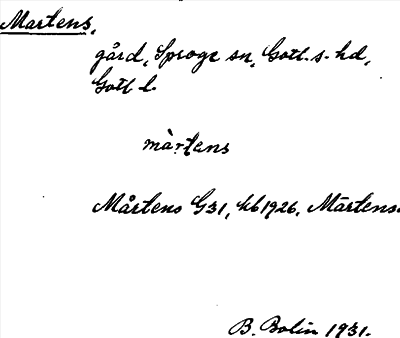 Martens,
gård, Sproge sn, Gotl. s. hd,
Gotl l.
màrtens
Mårtens G31, kb 1926, Mårtens.
B. Bolin 1931.